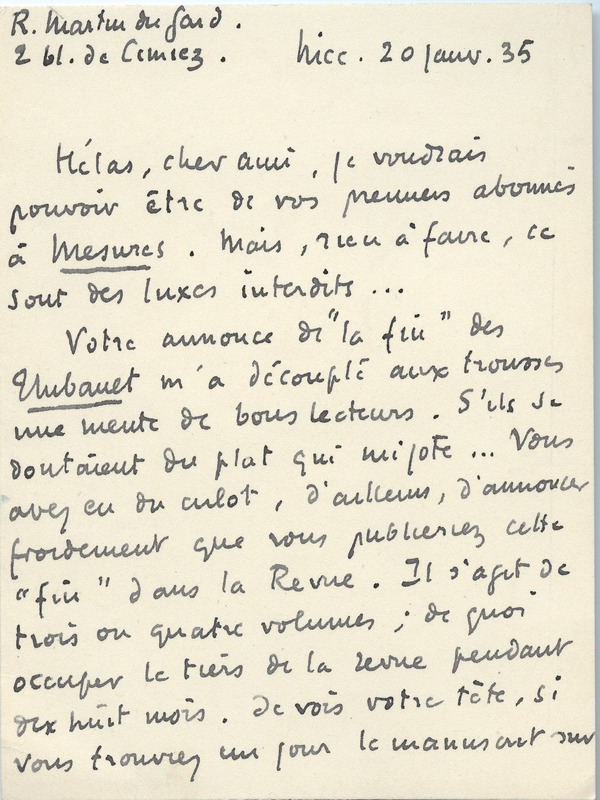 R. Martin du Gard.
2 bl. de Cimiez. Nice. 20 janv. 35
Hélas, cher ami, je voudrais
pouvoir être de vos premiers abonnés
à Mesures. Mais, rien à faire, ce
sont des luxes interdits ...
Votre annonce de "la fin" des
Thibault m'a découplé aux trousses
une meute de bons lecteurs. S'ils se
doutaient du plat qui mijote ... Vous
avez eu du culot, d'ailleurs, d'annoncer
froidement que vous publieriez cette
"fin" dans la Revue. Il s'agit de
trois ou quatre volumes ; de quoi
occuper le tiers de la revue pendant
dix huit mois. Je vois votre tête, si
vous trouviez un jour le manuscrit sur